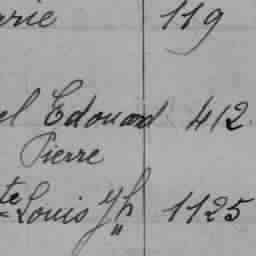 rie 119
el Edouard 412
Pierre
te Louis Jh 1125